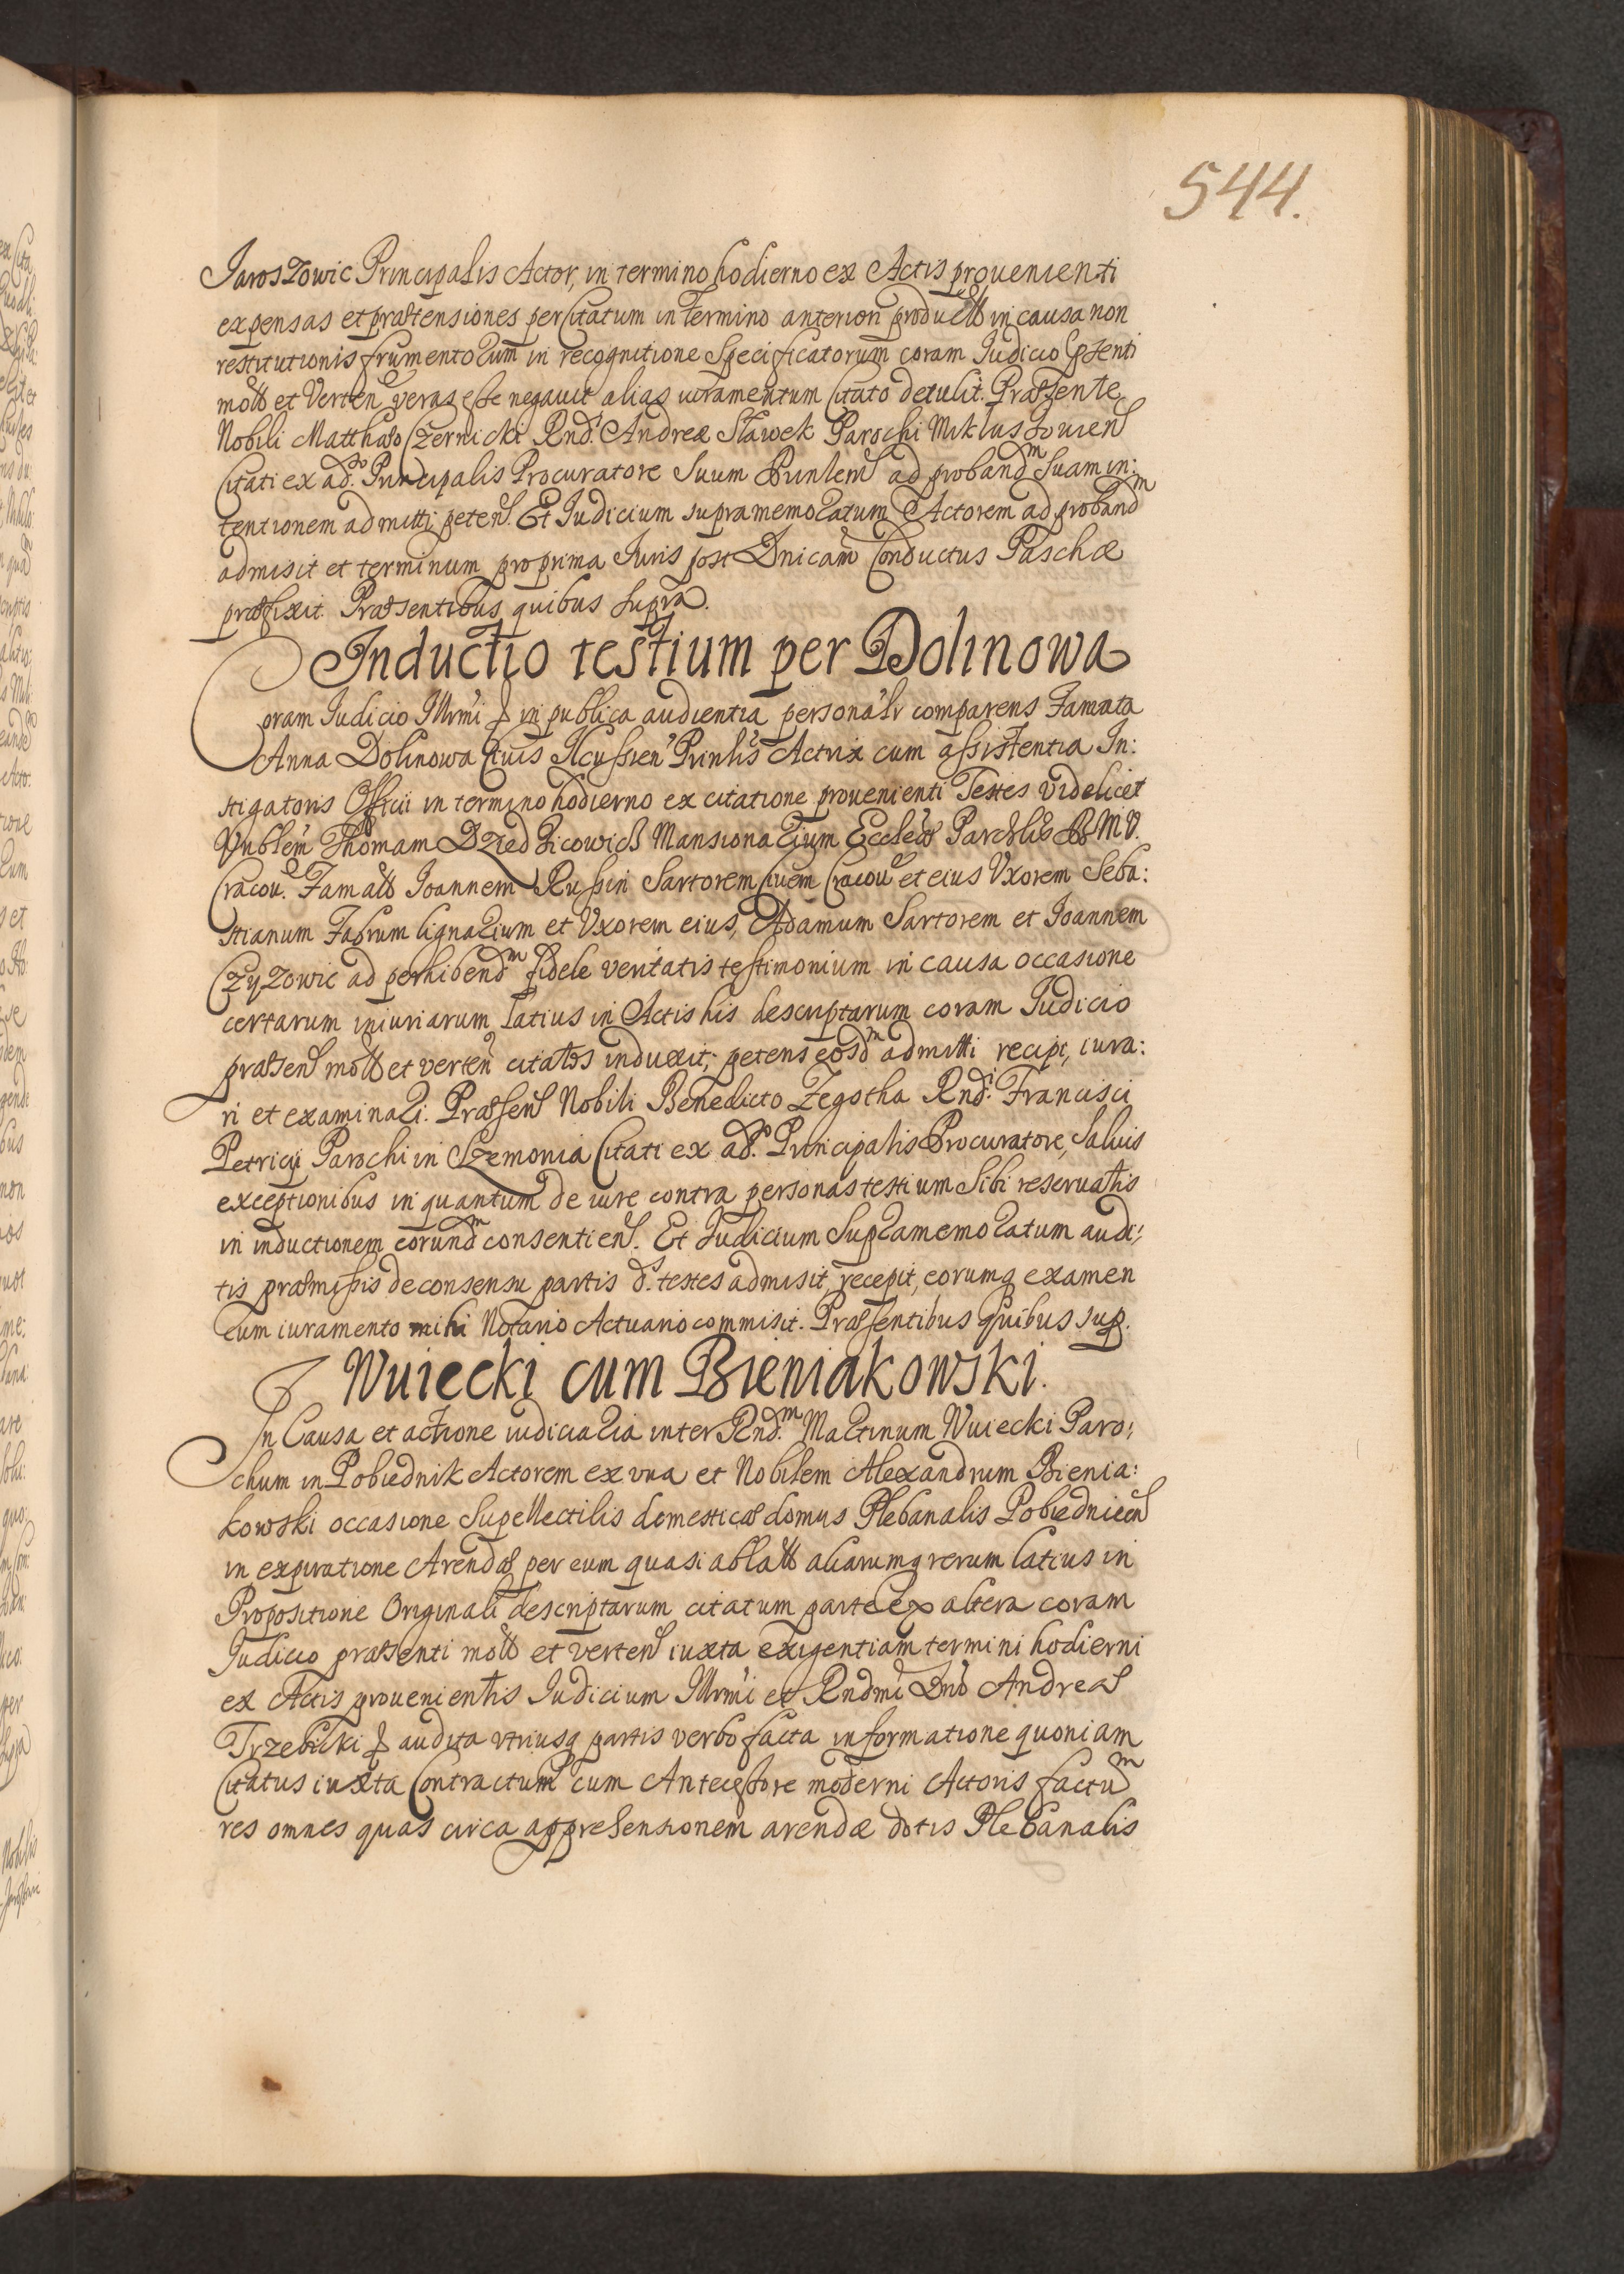 544.
Jaroszowic Principalis Actor, in termino hodierno ex Actis prouenienti
expensas et prætensiones per Citatum in Termino anteriori product in causa non
restitutionis frumentorum in recognitione Specificatorum coram Iudicio psenti
mot et Verten veras esse negauit alias iuramentum Citato detulit. Præsente
Nobili Matthæo Czernicki Rndi Andreæ Sławek Parochi Miklus
Citati ex ado. Principalis Procuratore Suum Prinlem ad proband͞m Suam in:
tentionem admitti peten. Et Iudicium supramemoratum Actorem ad proband͞m
admisit et terminum pro prima Iuris post Dnicam Conductus Paschæ
præfixit. Præsentibus quibus supra.
Inductio testium per Dolinowa
Coram Iudicio Illrmi & in publica audientia personalr comparens Famata
Anna Dolinowa Ciuis Ilcussien Prinlis Actrix cum assistentia In:
stigatoris Officii in termino hodierno ex citatione prouenienti Testes videlicet
Vnblem Thomam Dziedzicowicz Mansionarium Ecclesiæ Parchlis B. M V.
Cracou. Famat Ioannem Russin Sartorem Ciuem Cracou et eius Vxorem Seba:
stianum Fabrum lignarium et Vxorem eius, Adamum Sartorem et Ioannem
Czyzowic ad perhibend͞m fidele veritatis testimonium in causa occasione
certarum iniuriarum latius in Actis his descriptarum coram Iudicio
præsen mot et verten citatos induxit, petens eosd͞m admitti recipi, iura:
ri et examinari. Præsen Nobili Benedicto Zegotha Rndi. Francisci
Petricii Parochi in Szemonia Citati ex ado. Principalis Procuratore, Saluis
exceptionibus in quantum de iure contra personas testium Sibi reseruatis
in inductionem eorund͞m consentien. Et Iudicium Supramemoratum audi:
tis præmissis de consensu partis ds. testes admisit, recepit, eorumq examen
cum iuramento mihi Notario Actuario commisit. Præsentibus quibus sup.
Wuiecki cum Bieniakowski.
In Causa et actione iudiciaria inter Rnd͞m. Martinum Wuiecki Paro:
chum in Pobiednik Actorem ex vna et Nobilem Alexandrum Bienia:
kowski occasione Supellectilis domesticæ domus Plebanalis Pobiednicen
in expiratione Arendæ per eum quasi ablat aliarumq rerum latius in
Propositione Originali descriptarum citatum parte ex altera coram
Iudicio præsenti mot et verten iuxta exigentiam termini hodierni
ex Actis prouenientis Iudicium Illrmi et Rndmi Dni Andreæ
Trzebicki & audita vtriusq partis verbo facta informatione quoniam
Citatus iuxta Contractum cum Antecessore moderni Actoris factu͞m
res omnes quas circa apprehensionem arendæ dotis Plebanalis